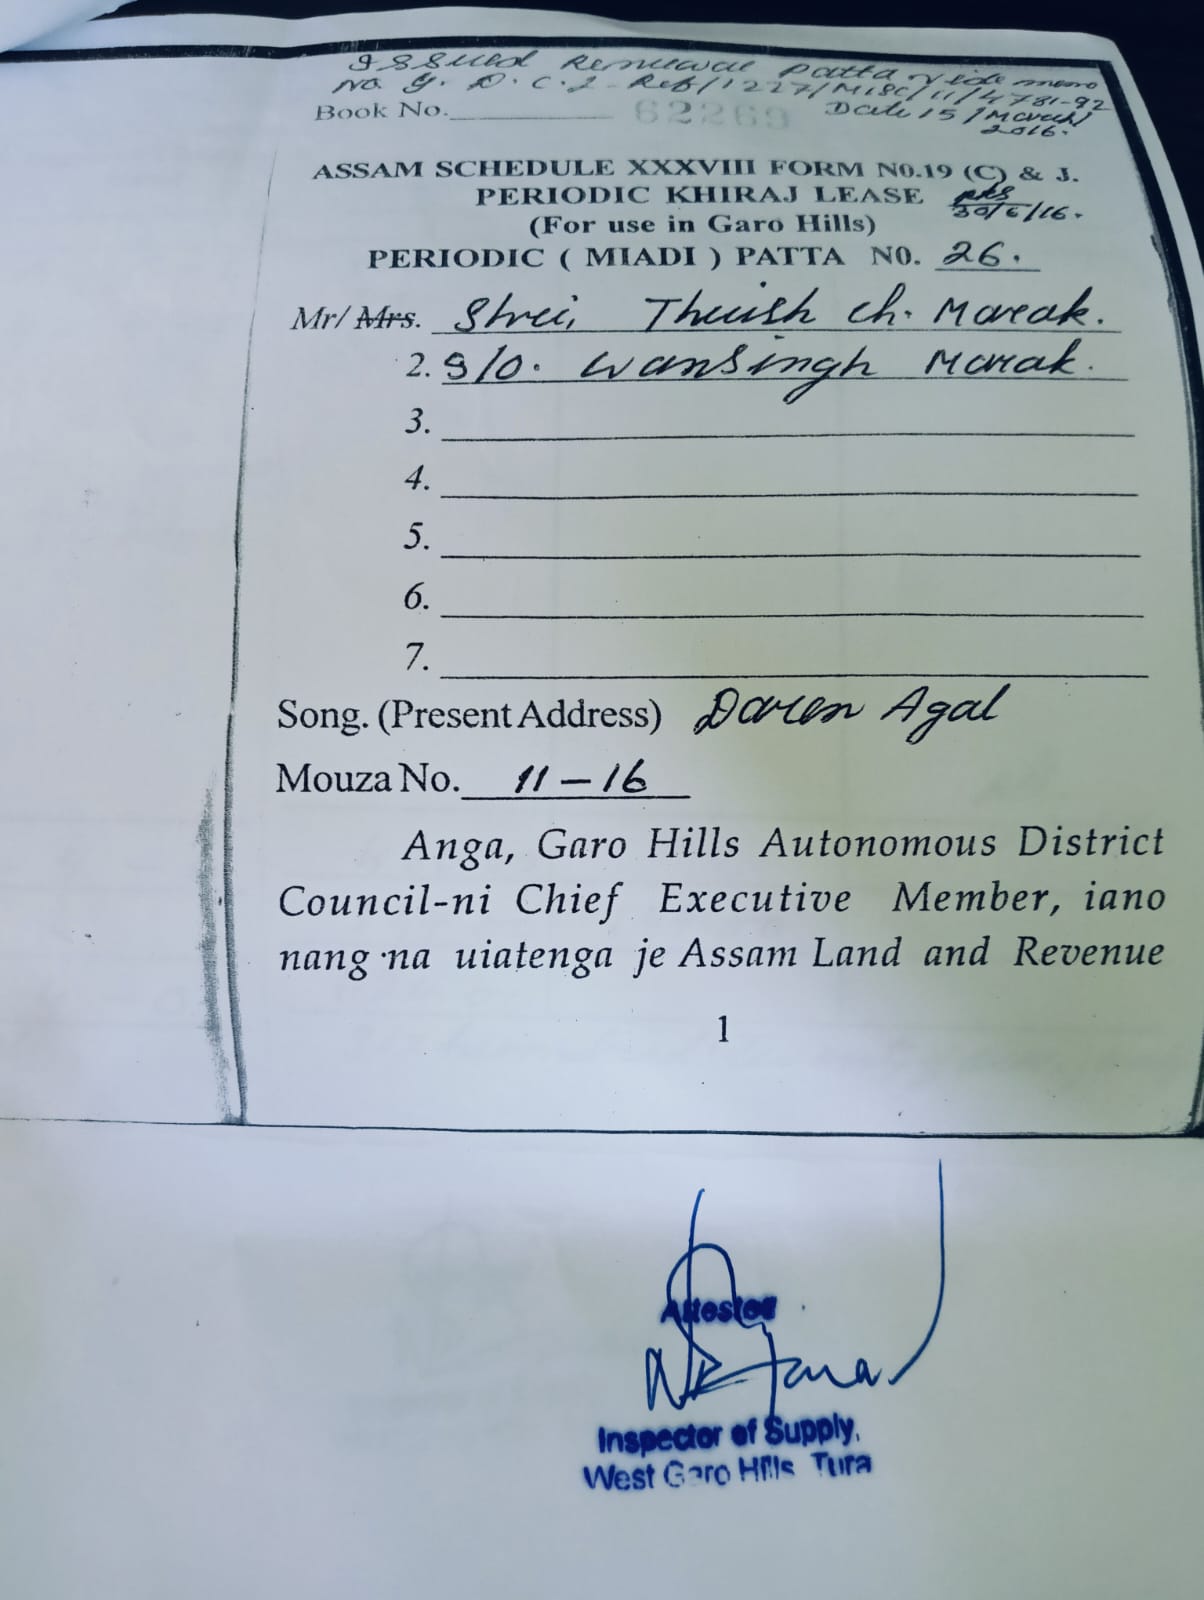 Issued Renewal Patta vide memo
No. G. D. C. J. Reb/1227/Misc/11/4781-92
Date 15/March/
2016.
Book No. 62269
ASSAM SCHEDULE XXXVIII FORM NO.19 (C) & J.
PERIODIC KHIRAJ LEASE
30/6/16.
(For use in Garo Hills)
PERIODIC ( MIADI ) PATTA NO. 26.
Mr/ Mrs. Shrei, Thuish ch. Marak.
2. S/O. Wansingh Marak.
3.
4.
5.
6.
7.
Song. (Present Address) Daren Agal
Mouza No. 11-16
Anga, Garo Hills Autonomous District
Council-ni Chief Executive Member, iano
nang na uiatenga je Assam Land and Revenue
1
Attested
Inspector of Supply,
West Garo Hills Tura